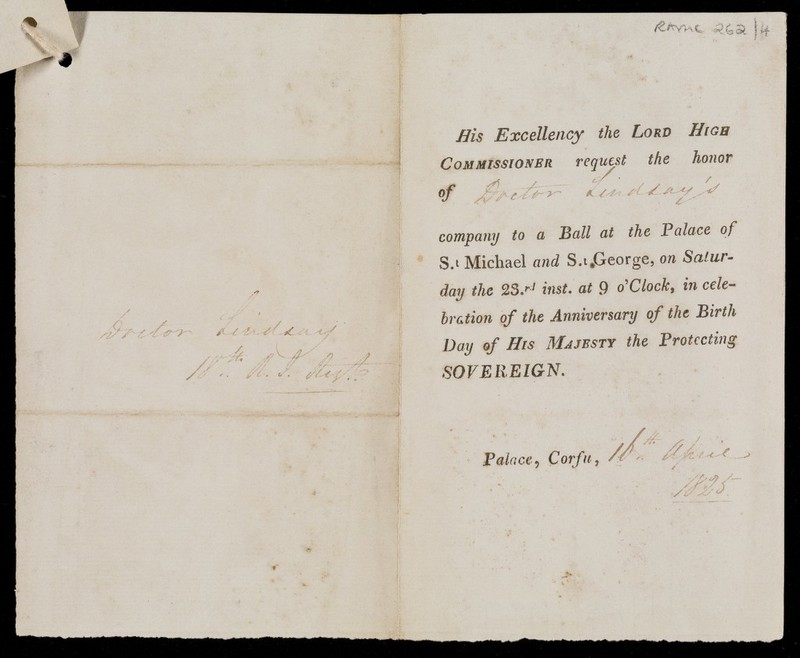 RAMC 262/4
His Excellency the LORD HIGH
COMMISSIONER request the honor
of Doctor Lindsay's
company to a Ball at the Palace of
S.t Michael and S.t George, on Satur-
day the 23.rd inst. at 9 o'Clock, in cele-
bration of the Anniversary of the Birth
Day of HIS MAJESTY the Protecting
SOVEREIGN.
Palace, Corfu, 16th April
1825.
Doctor Lindsay
18th R. I. Regt.